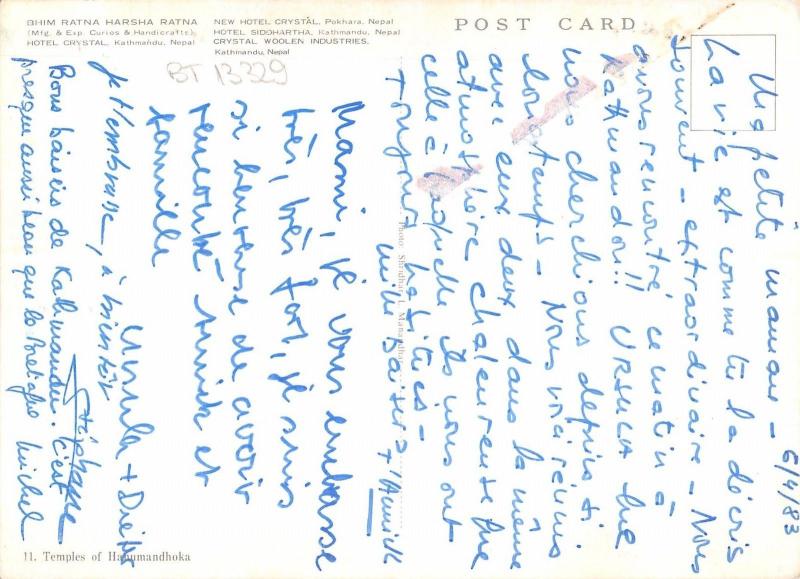 BHIM RATNA HARSHA RATNA
(Mfg. & Exp. Curios & Handicrafts)
HOTEL CRYSTAL, Kathmandu, Nepal
NEW HOTEL CRYSTAL, Pokhara, Nepal
HOTEL SIDDHARTHA, Kathmandu, Nepal
CRYSTAL WOOLEN INDUSTRIES,
Kathmandu, Nepal
POST CARD
BT 13329
6/4/83
Ma petite maman -
La vie est comme tu la décris
souvent - extraordinaire - Nous
avons rencontré ce matin à
Kathmandou!! URSULA que
nous cherchions depuis si
longtemps - Nous voici réunis
avec eux deux dans la même
atmosphère chaleureuse que
celle à laquelle ils nous ont
toujours habitués -
mille baisers + Annick
Mami, je vous embrasse
très, très fort, je suis
si heureuse de avoir
rencontré Annick et
famille
Ursula + Dieter
je t'embrasse, à bientôt
Stéphane
Bons baisers de Kathmandu. C'est
presque aussi beau que la Bretagne Michel
Photo: Shridhar L Manandhar
11. Temples of Hanumandhoka